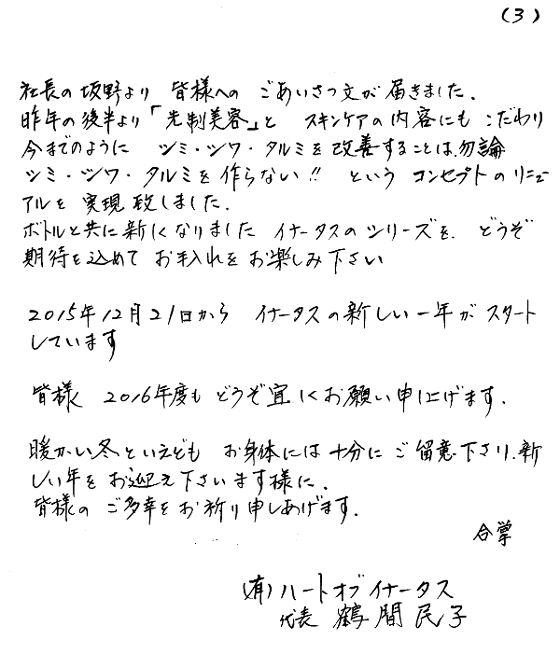 (3)
社長の坂野より 皆様への ごあいさつ文が届きました.
昨年の後半より「先制美容」と スキンケアの内容にも こだわり
今までのように シミ・シワ・タルミを改善することは勿論
シミ・シワ・タルミを作らない!! という コンセプトのリニュー
アルを 実現致しました.
ボトルと共に新しくなりました イナータスのシリーズを. どうぞ
期待を込めて お手入れをお楽しみ下さい
2015年12月21日から イナータスの新しい一年がスタート
しています
皆様 2016年度も どうぞ宜しくお願い申し上げます.
暖かい冬といえども お身体には十分にご留意下さり.新
しい年をお迎え下さいます様に.
皆様の ご多幸をお祈り申しあげます.
合掌
(有)ハートオブイナータス
代表 鶴間民子